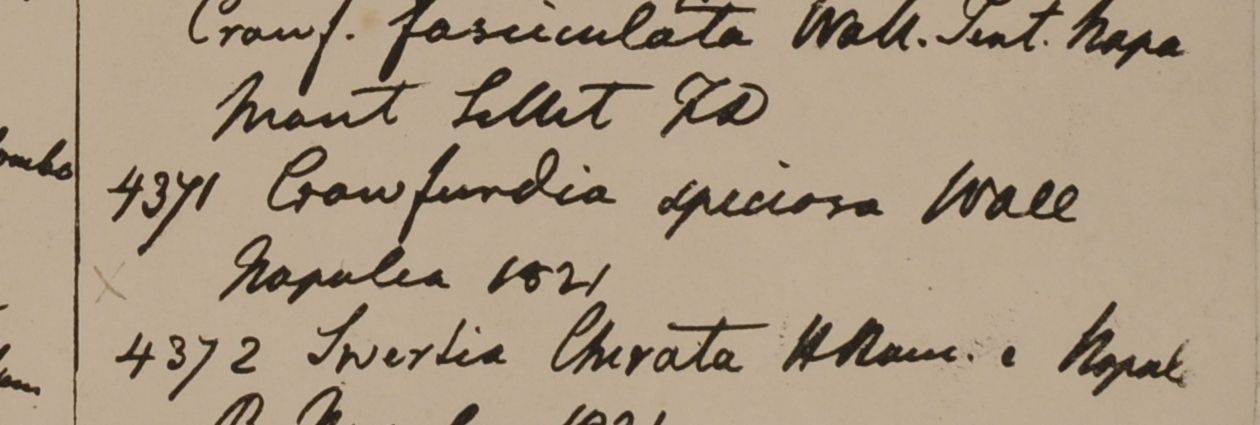 Crawf. fasciculata Wall. Tent. Napa
Mont Sillet FD
4371 Crawfurdia speciosa Wall
Napalia 1821
4372 Swertia Chirata H Ham. e Napal